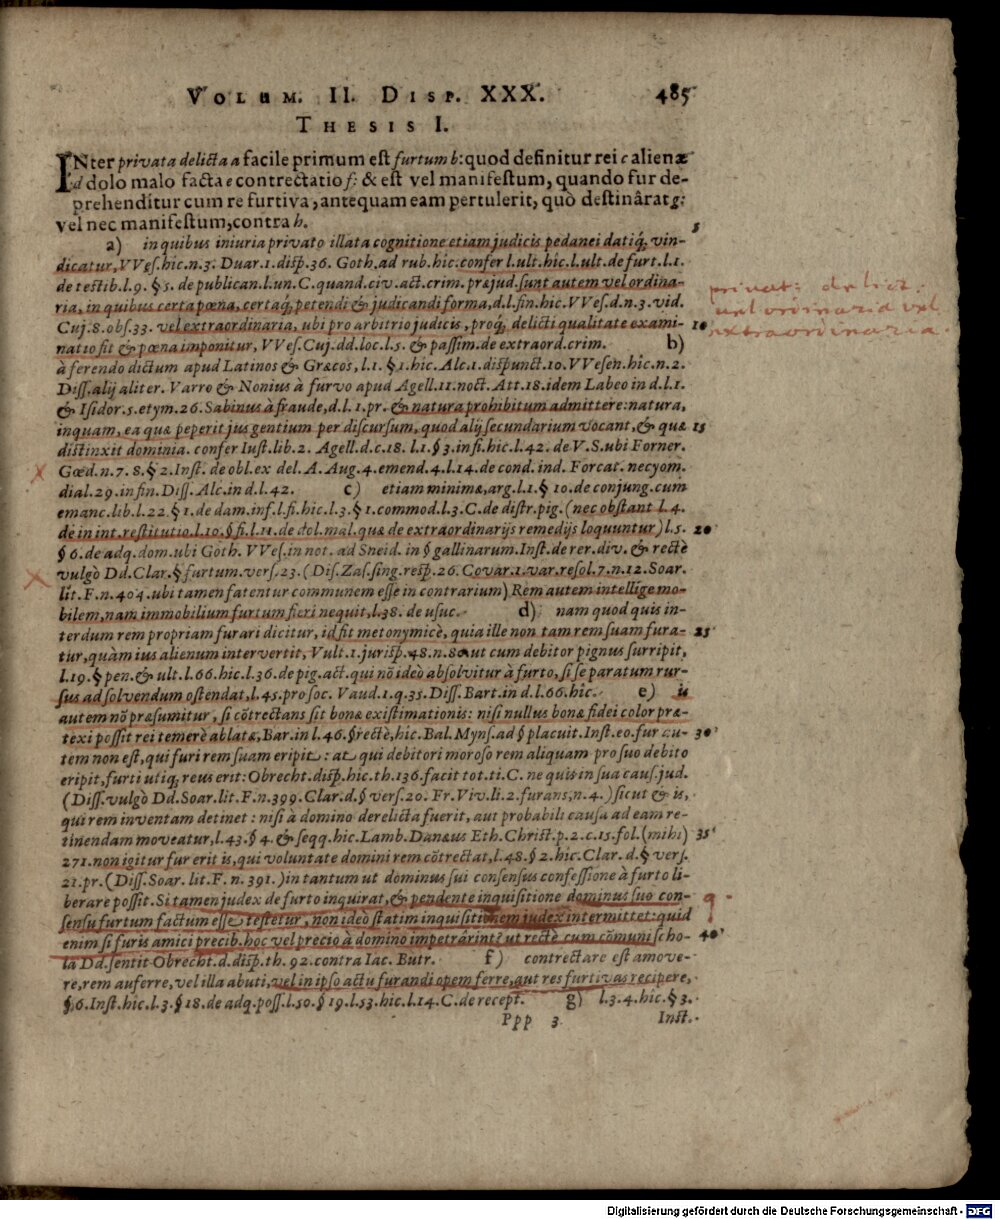 VOLUM. II. DISP. XXX. 485
THESIS I.
INter privata delicta a facile primum est furtum b: quod definitur rei c alienæ
d dolo malo facta e contrectatio f: & est vel manifestum, quando fur de-
prehenditur cum re furtiva, antequam eam pertulerit, quò destinârat g:
vel nec manifestum, contra h. 5
a) in quibus iniuria privato illata cognitione etiam judicis pedanei datiq́; vin-
dicatur, VVes. hic. n. 3. Duar. 1. disp. 36. Goth. ad rub. hic. confer l. ult. hîc. l. ult. de furt. l. 1.
de testib. l. 9. § 5. de publican. l. un. C. quand. civ. act. crim. præjud. sunt autem vel ordina-
ria, in quibus certa pœna, certaq́; petendi & judicandi forma, d. l. fin. hic. VVes. d. n. 3. vid.
Cuj. 8. obs. 33. vel extraordinaria, ubi pro arbitrio judicis, proq́; delicti qualitate exami- 10
natio fit & pœna imponitur, VVes. Cuj. dd. loc. l. 5. & passim. de extraord. crim. b)
à ferendo dictum apud Latinos & Græcos, l. 1. § 1. hic. Alc. 1. dispunct. 10. VVesen. hic. n. 2.
Diss. alij aliter. Varro & Nonius à furvo apud Agell. 11. noct. Att. 18. idem Labeo in d. l. 1.
& Isidor. 5. etym. 26. Sabinus à fraude, d. l. 1. pr. & natura prohibitum admittere: natura,
inquam, ea quæ peperit jus gentium per discursum, quod alij secundarium vocant, & quæ 15
distinxit dominia. confer Iust. lib. 2. Agell. d. c. 18. l. 1. § 3. infi. hic. l. 42. de V. S. ubi Forner.
Gœd. n. 7. 8. § 2. Inst. de obl. ex del. A. Aug. 4. emend. 4. l. 14. de cond. ind. Forcat. necyom.
dial. 29. in fin. Diss. Alc. in d. l. 42. c) etiam minimæ, arg. l. 1. § 10. de conjung. cum
emanc. lib. l. 22. § 1. de dam. inf. l. fi. hic. l. 3. § 1. commod. l. 3. C. de distr. pig. (nec obstant l. 4.
de in int. restitutio. l. 10. § fi. l. 11. de dol. mal. quæ de extraordinarijs remedijs loquuntur) l. 5. 20
§ 6. de adq. dom. ubi Goth. VVes. in not. ad Sneid. in § gallinarum. Inst. de rer. div. & rectè
vulgò Dd. Clar. § furtum. vers. 23. (Dis. Zas. sing. resp. 26. Covar. 1. var. resol. 7. n. 12. Soar.
lit. F. n. 404. ubi tamen fatentur communem esse in contrarium) Rem autem intellige mo-
bilem, nam immobilium furtum fieri nequit, l. 38. de usuc. d) nam quod quis in-
terdum rem propriam furari dicitur, id fit metonymicè, quia ille non tam rem suam fura- 25
tur, quàm ius alienum intervertit, Vult. 1. jurisp. 48. n. 8. ut cum debitor pignus surripit,
l. 19. § pen. & ult. l. 66. hic. l. 36. de pig. act. qui nõ ideò absolvitur à furto, si se paratum rur-
sus ad solvendum ostendat, l. 45. pro soc. Vaud. 1. q. 35. Diss. Bart. in d. l. 66. hic. e) is
autem nõ præsumitur, si cõtrectans sit bonæ existimationis: nisi nullus bonæ fidei color præ-
texi possit rei temerè ablatæ, Bar. in l. 46. § rectè, hic. Bal. Myns. ad § placuit. Inst. eo. fur au- 30
tem non est, qui furi rem suam eripit: at qui debitori moroso rem aliquam pro suo debito
eripit, furti utiq; reus erit: Obrecht. disp. hic. th. 136. facit tot. ti. C. ne quis in sua caus. jud.
(Diss. vulgò Dd. Soar. lit. F. n. 399. Clar. d. § vers. 20. Fr. Viv. li. 2. furans, n. 4.) sicut & is,
qui rem inventam detinet: nisi à domino derelicta fuerit, aut probabili causa ad eam re-
tinendam moveatur, l. 43. § 4. & seqq. hic. Lamb. Danæus Eth. Christ. p. 2. c. 15. fol. (mihi) 35
271. non igitur fur erit is, qui voluntate domini rem cõtrectat, l. 48. § 2. hic. Clar. d. § vers.
21. pr. (Diss. Soar. lit. F. n. 391.) in tantum ut dominus sui consensus confessione à furto li-
berare possit. Si tamen judex de furto inquirat, & pendente inquisitione dominus suo con-
sensu furtum factum esse testetur, non ideò statim inquisitionem judex intermittet: quid
enim si furis amici precib. hoc vel precio à domino impetrârint? ut rectè cum cõmuni scho- 40
la Dd. sentit Obrecht. d. disp. th. 92. contra Iac. Butr. f) contrectare est amove-
re, rem auferre, vel illa abuti, vel in ipso actu furandi opem ferre, aut res furtivas recipere,
§. 6. Inst. hic. l. 3. § 18. de adq. poss. l. 50. § 19. l. 53. hic. l. 14. C. de recept. g) l. 3. 4. hîc. § 3.
Ppp 3 Inst.
privat: delict:
vel ordinaria vel
extraordinaria.
Digitalisierung gefördert durch die Deutsche Forschungsgemeinschaft - DFG